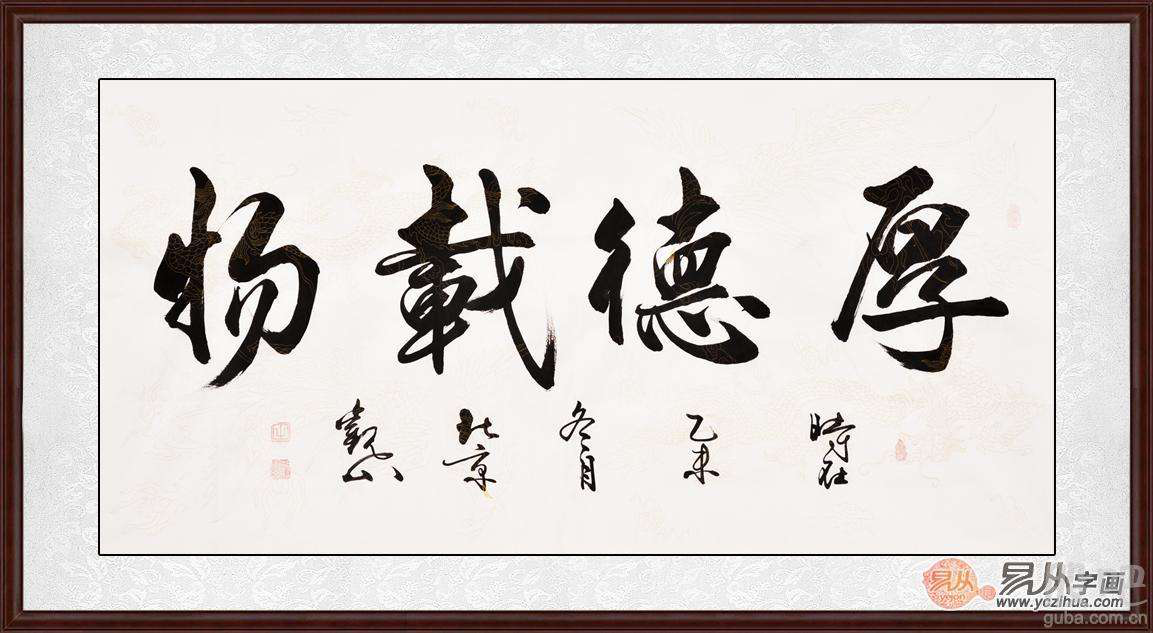 厚德載物
時在
乙未
冬月
北京
觀山
易从
yczon
易从字画
www.yczihua.com
guba.com.cn